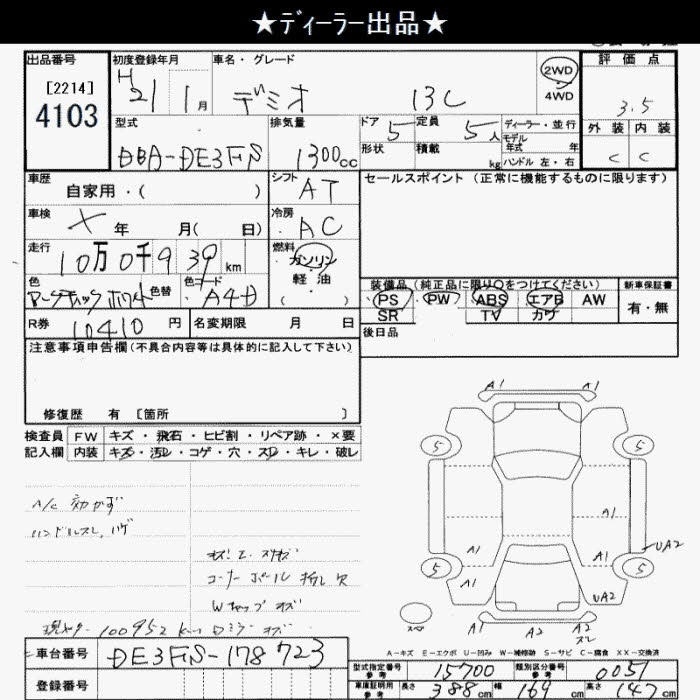 ★ディーラー出品★
出品番号 初度登録年月 車名・グレード 評価点
[2214] H 21 1月 デミオ 13C 2WD 3.5
4103 4WD
型式 排気量 ドア 5 定員 5人 ディーラー・並行 外装 内装
DBA-DE3FS 1300cc 形状 積載 kg モデル年式 年 C C
ハンドル 左・右
車歴 シフト AT セールスポイント (正常に機能するものに限ります)
自家用・( )
車検 × 年 月( 日) 冷房 AC
走行 10万0千939km 燃料 ガソリン
軽油
( )
色 色替 色コード A4D 装備品 (純正品に限り○をつけてください) 新車保証書
PS PW ABS エアB AW 有・無
SR TV カワ
R券 10410円 名変期限 月 日 後日品
注意事項申告欄(不具合内容等は具体的に記入して下さい)
修復歴 有 [箇所 ]
検査員 FW キズ・飛石・ヒビ割・リペア跡・×要
記入欄 内装 キズ・汚レ・コゲ・穴・スレ・キレ・破レ
A/C 効かず
ハンドルスレ,ハゲ
コーナーポール 折レ欠
Wキャップ キズ
現メーター100952km
A1 A1
5 5
A1
A1 A1 UA2
5 A1 5
UA2
A1 A2 A2
スレ
A-キズ E-エクボ U-凹み W-補修跡 S-サビ C-腐食 XX-交換済
車台番号 DE3FS-178723
型式指定番号 参考 15700 類別区分番号 参考 0051
登録番号 車庫証明用 参考 長さ 388cm 幅 169cm 高さ 147cm